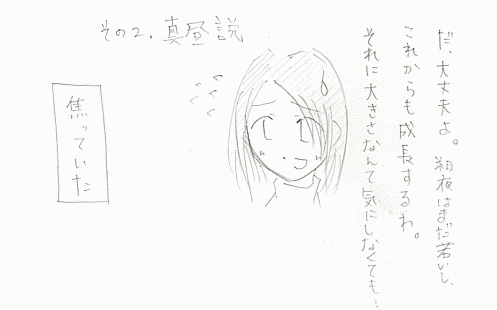 その2.真昼説
だ、大丈夫よ。朔夜はまだ若いし、
これからも成長するわ。
それに大きさなんて気にしなくても…
焦っていた